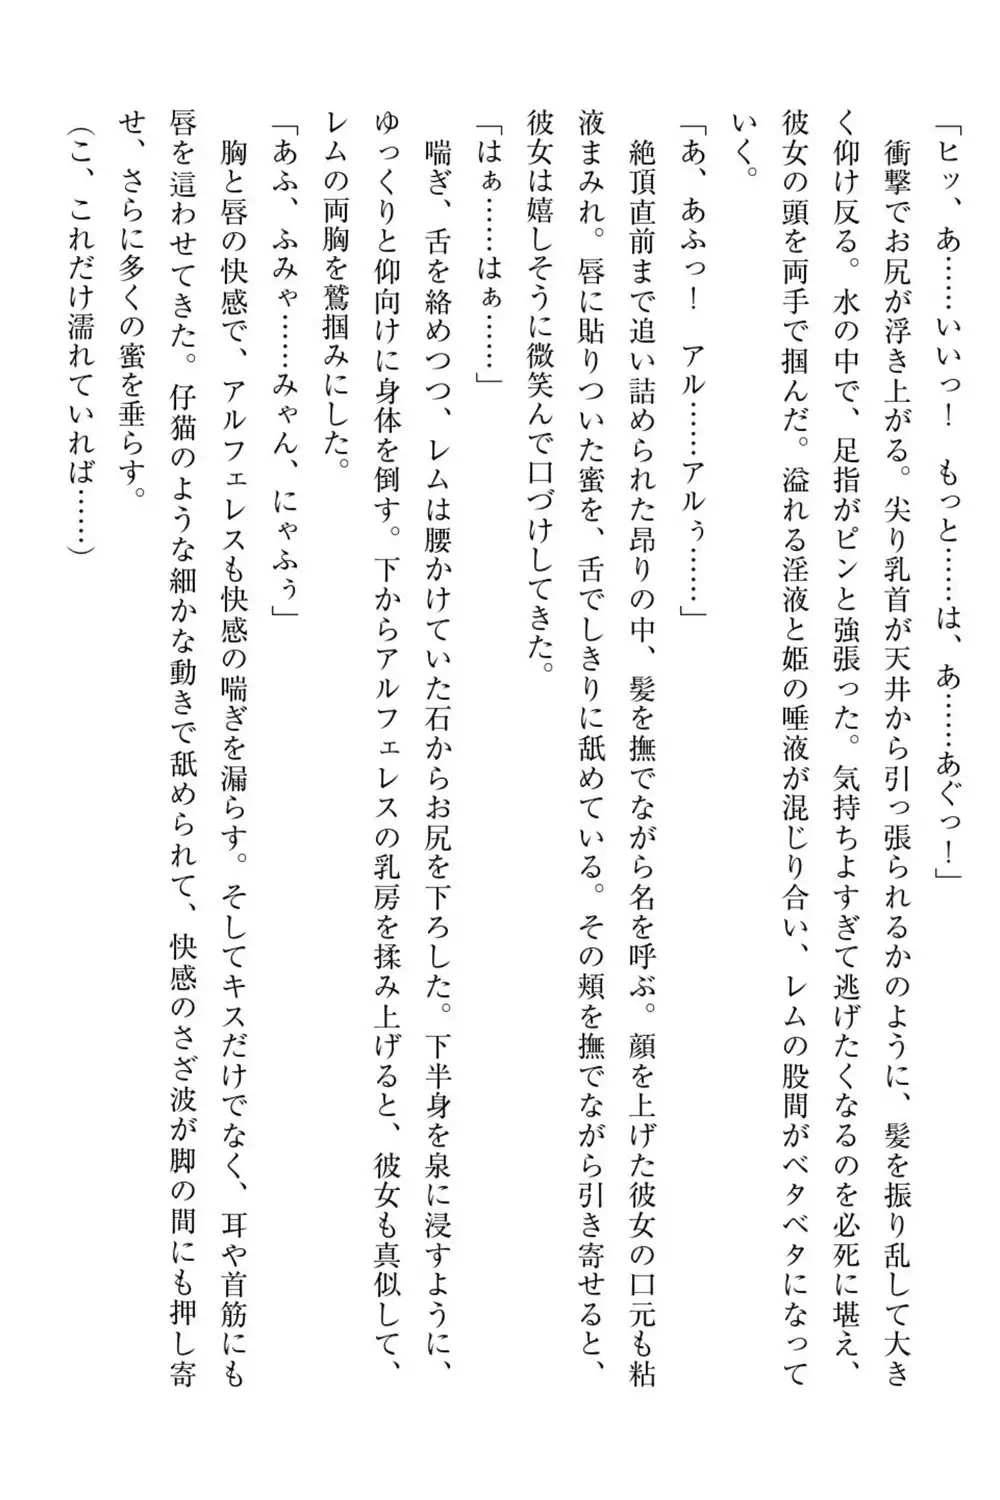 「ヒッ、あ……いいっ！　もっと……は、あ……あぐっ！」
　衝撃でお尻が浮き上がる。尖り乳首が天井から引っ張られるかのように、髪を振り乱して大き
く仰け反る。水の中で、足指がピンと強張った。気持ちよすぎて逃げたくなるのを必死に堪え、
彼女の頭を両手で掴んだ。溢れる淫液と姫の唾液が混じり合い、レムの股間がベタベタになって
いく。
「あ、あふっ！　アル……アルぅ……」
　絶頂直前まで追い詰められた昂りの中、髪を撫でながら名を呼ぶ。顔を上げた彼女の口元も粘
液まみれ。唇に貼りついた蜜を、舌でしきりに舐めている。その頬を撫でながら引き寄せると、
彼女は嬉しそうに微笑んで口づけしてきた。
「はぁ……はぁ……」
　喘ぎ、舌を絡めつつ、レムは腰かけていた石からお尻を下ろした。下半身を泉に浸すように、
ゆっくりと仰向けに身体を倒す。下からアルフェレスの乳房を揉み上げると、彼女も真似して、
レムの両胸を鷲掴みにした。
「あふ、ふみゃ……みゃん、にゃふぅ」
　胸と唇の快感で、アルフェレスも快感の喘ぎを漏らす。そしてキスだけでなく、耳や首筋にも
唇を這わせてきた。仔猫のような細かな動きで舐められて、快感のさざ波が脚の間にも押し寄
せ、さらに多くの蜜を垂らす。
（こ、これだけ濡れていれば……）